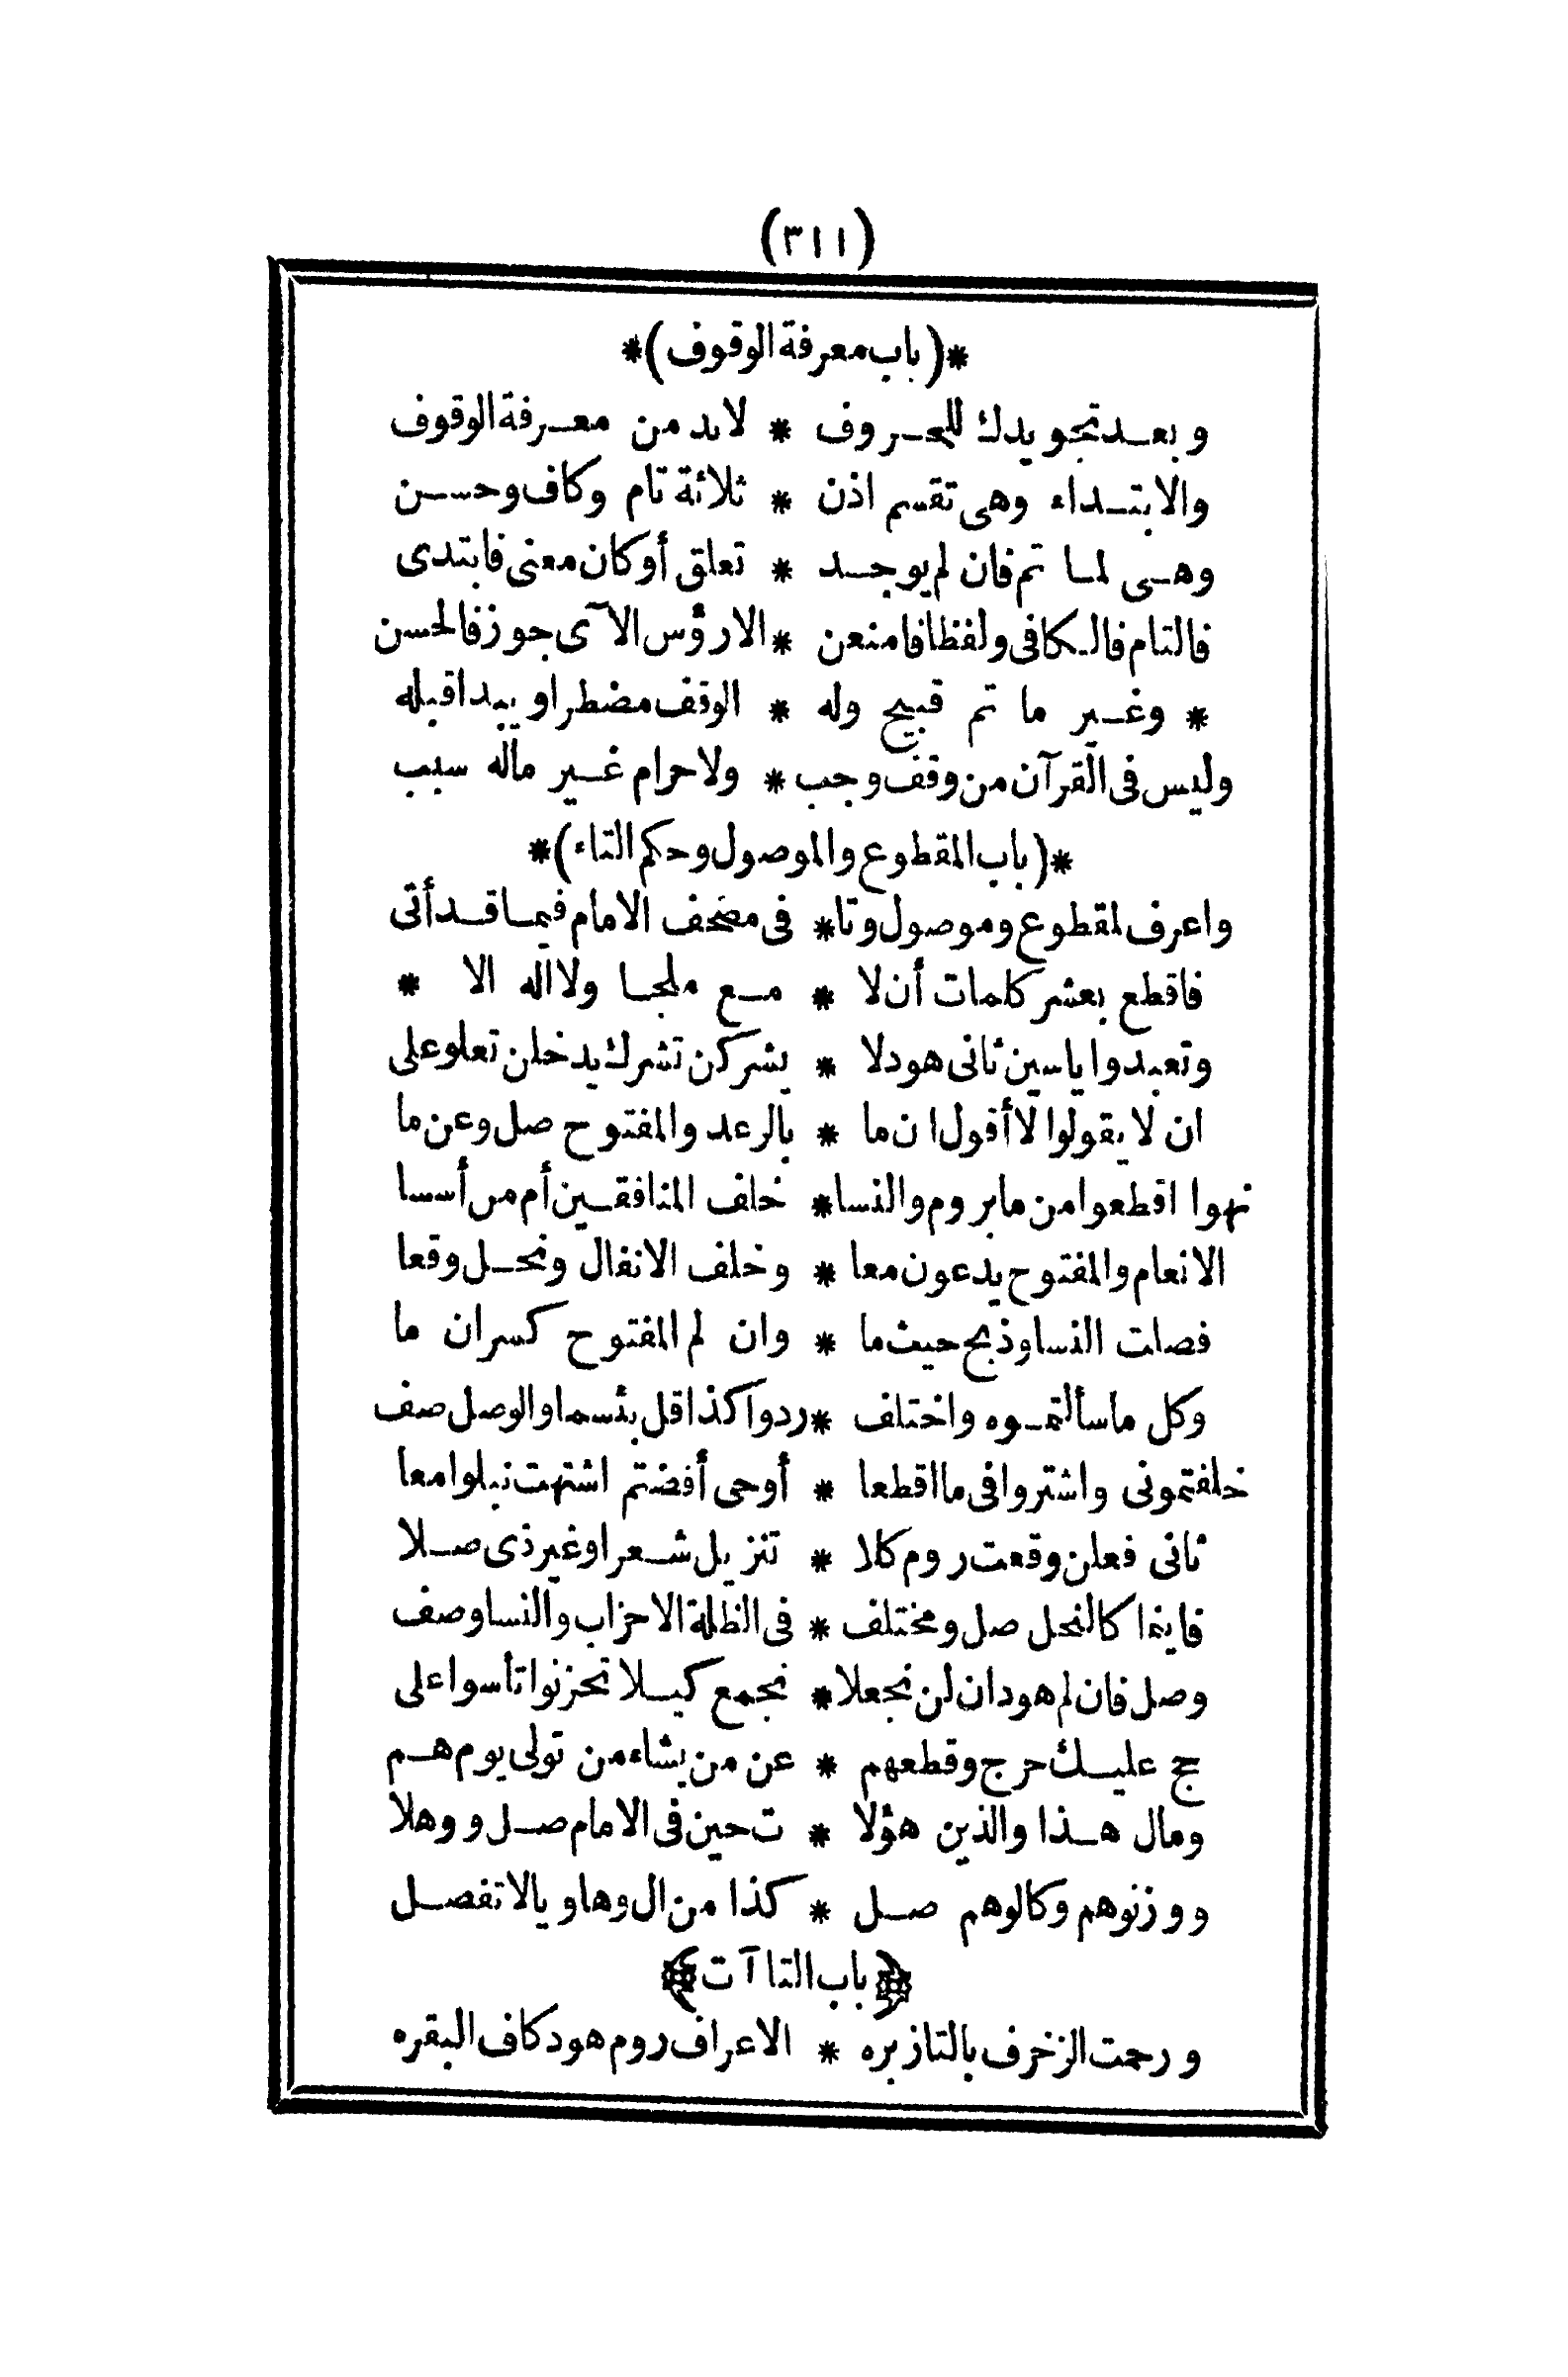 (٣١١)
*(باب معرفة الوقوف)*
وبعد تجويدك للحروف * لابد من معرفة الوقوف
والابتداء وهى تقسم اذن * ثلاثة تام وكاف وحسن
وهى لما تم فان لم يوجد * تعلق أو كان معنى فابتدى
فالتام فالكافى ولفظا فامنعن * الا رؤس الآى جوز فالحسن
* وغير ما تم قبيح وله * الوقف مضطرا ويبدا قبله
وليس فى القرآن من وقف وجب * ولا حرام غير ماله سبب
*(باب المقطوع والموصول وحكم التاء)*
واعرف لمقطوع وموصول وتا * فى مصحف الامام فيما قد أتى
فاقطع بعشر كلمات أن لا * مع ملجا ولا اله الا *
وتعبدوا ياسين ثانى هود لا * يشركن تشرك يدخلن تعلو على
ان لا يقولوا لا أقول ان ما * بالرعد والمفتوح صل وعن ما
نهوا اقطعوا من ما بروم والنسا * خلف المنافقين أم من أسسا
الانعام والمفتوح يدعون معا * وخلف الانفال ونحل وقعا
فصلت النسا وذبح حيث ما * وان لم المفتوح كسر ان ما
وكل ما سألتموه واختلف * ردوا كذا قل بئسما والوصل صف
خلفتمونى واشتروا فى ما اقطعا * أوحى أفضتم اشتهت نبلوا معا
ثانى فعلن وقعت روم كلا * تنزيل شعرا وغير ذى صلا
فاينما كالنحل صل ومختلف * فى الظلة الاحزاب والنسا وصف
وصل فان لم هود ان لن نجعلا * نجمع كيلا تحزنوا تأسوا على
حج عليك حرج وقطعهم * عن من يشاء من تولى يوم هم
ومال هذا والذين هؤلا * ت حين فى الامام صل ووهلا
ووزنوهم وكالوهم صل * كذا من ال وها ويا لا تفصل
﴿باب التاآت﴾
ورحمت الزخرف بالتا زبره * الاعراف روم هود كاف البقره